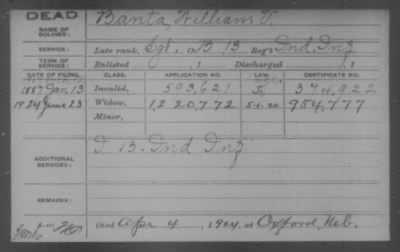 DEAD
NAME OF SOLDIER: Banta, William V.
SERVICE: Late rank, Sgt., Co. B, 13 Reg't Ind. Inf.
TERM OF SERVICE: Enlisted , 1 Discharged , 1
DATE OF FILING. CLASS. APPLICATION NO. LAW. CERTIFICATE NO.
1887 Jan 13 Invalid, 593,621 922
1924 June 23 Widow, 1,220,772 5-1-20 954,777
Minor,
ADDITIONAL SERVICES: I 13 Ind Inf
REMARKS:
Died Apr 4, 1924, at Oxford, Neb.